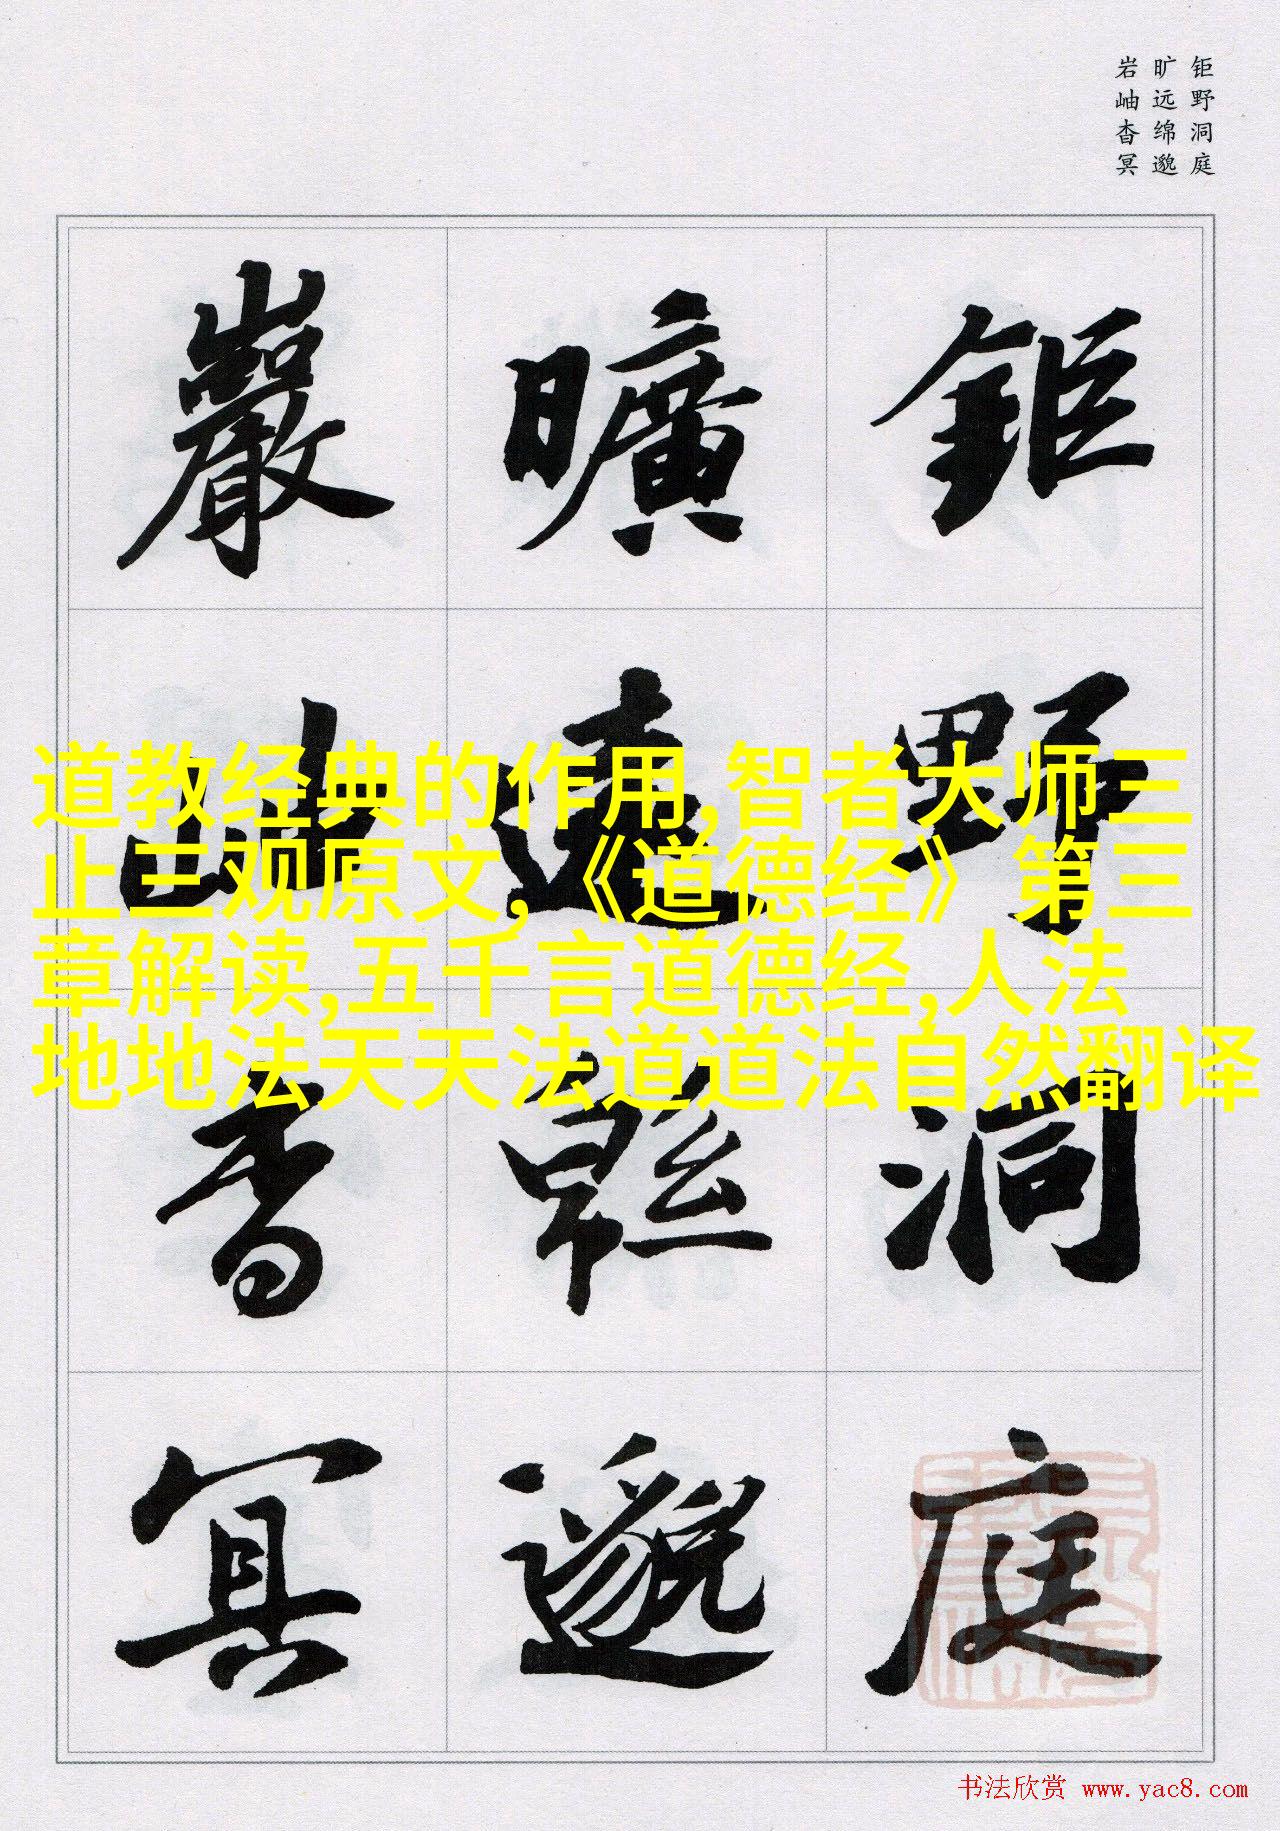 钜野洞庭
旷远绵邈
岩岫杳冥
鉅野洞庭
曠遠緜邈
巖岫杳冥
道教经典的作用,智者大师三
止三观原文,《道德经》第三
章解读,五千言道德经,人法
地地法天天法道道法自然翻译
书法欣赏 www.yac8.com